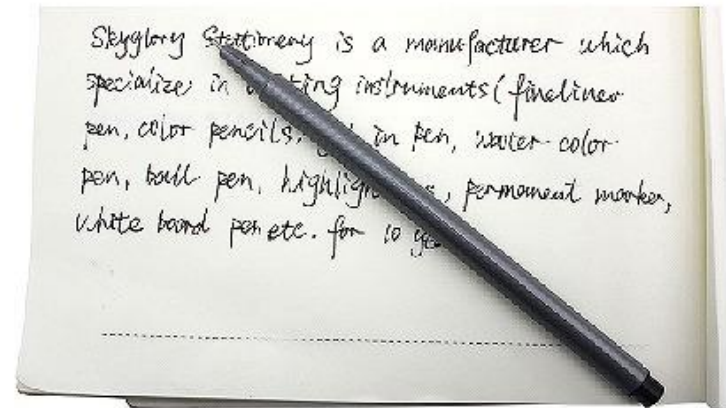 Skyglory Stationery is a manufacturer which
specialize in writing instruments (fineliner
pen, color pencils, in pen, water color
pen, ball pen, highlig s, permanent marker,
white board pen etc. for 10